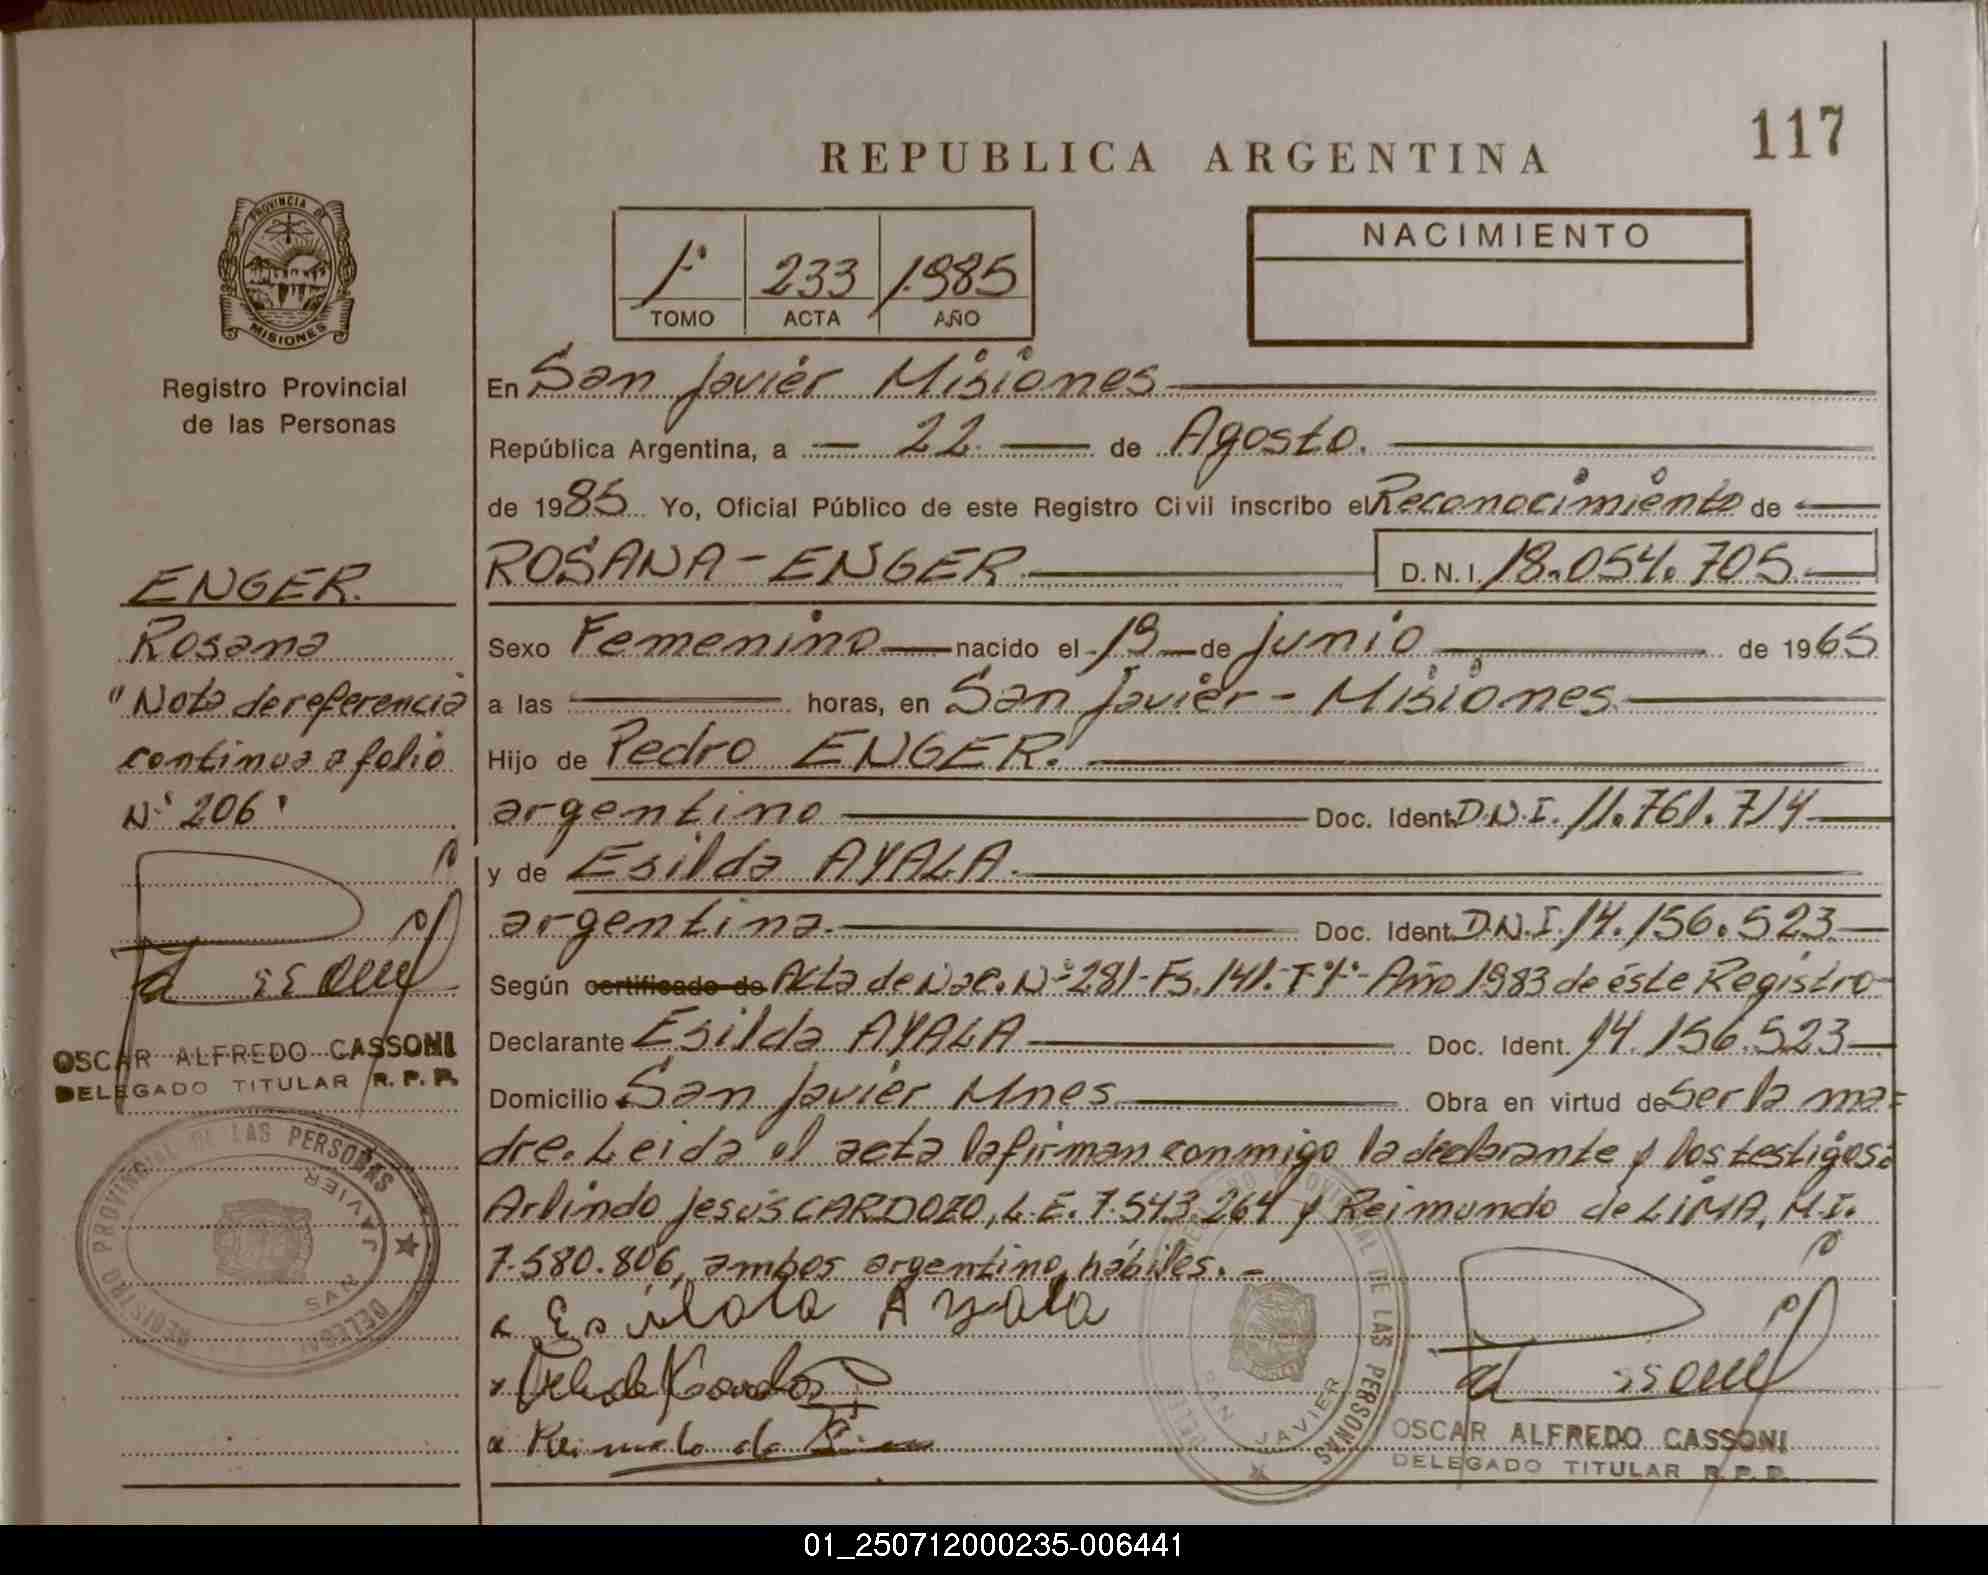 117
REPUBLICA ARGENTINA
PROVINCIA DE
MISIONES
Registro Provincial
de las Personas
1º 233 1.985
TOMO ACTA AÑO
NACIMIENTO
En San Javier Misiones
República Argentina, a 22 de Agosto.
de 1985 Yo, Oficial Público de este Registro Civil inscribo el Reconocimiento de
ROSANA - ENGER D.N.I. 18.054.705
Sexo Femenino nacido el 19 de junio de 1965
a las horas, en San Javier - Misiones
Hijo de Pedro ENGER.
argentino Doc. Ident. D.N.I. 11.761.714
y de Esilda AYALA
argentina Doc. Ident. D.N.I. 14.156.523
Según certificado de Acta de Nac. Nº 281 - Fs. 141. Tº 1º - Año 1983 de éste Registro
Declarante Esilda AYALA Doc. Ident. 14.156.523
Domicilio San Javier Mnes. Obra en virtud de Ser la ma=
dre. Leida el acta la firman conmigo la declarante y los testigos:
Arlindo Jesús CARDOZO, L.E. 7.543.264 y Reimundo de LIMA, M.I.
7.580.806, ambos argentino, hábiles. -
Esilda Ayala
Reimundo de
OSCAR ALFREDO CASSONI
DELEGADO TITULAR R.P.P.
ENGER.
Rosana
"Nota de referencia
continua a folio
Nº 206"
OSCAR ALFREDO CASSONI
DELEGADO TITULAR R.P.P.
REGISTRO PROVINCIAL DE LAS PERSONAS
SAN JAVIER
DE LAS PERSONAS
SAN JAVIER
01_250712000235-006441